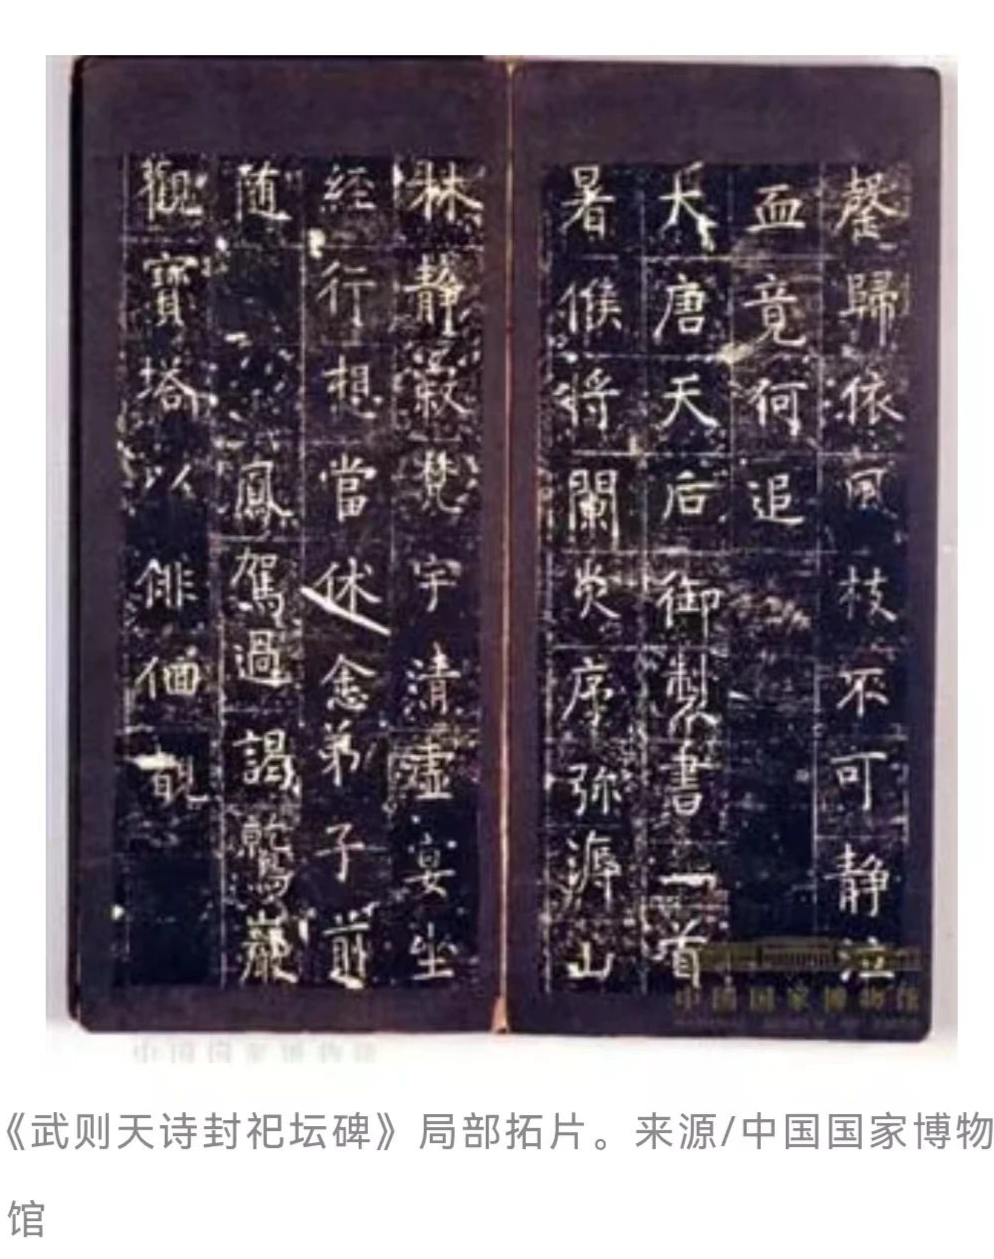 罄歸依風枝不可静泣
血竟何追
大唐天后御製書一首
暑候将闌炎序弥溽山
林静寂梵宇清虚宴坐
経行想當休念弟子前
随 鳳駕過謁鷲巖
觀寶塔以俳佪覩
中国国家博物馆
《武则天诗封祀坛碑》局部拓片。来源/中国国家博物
馆